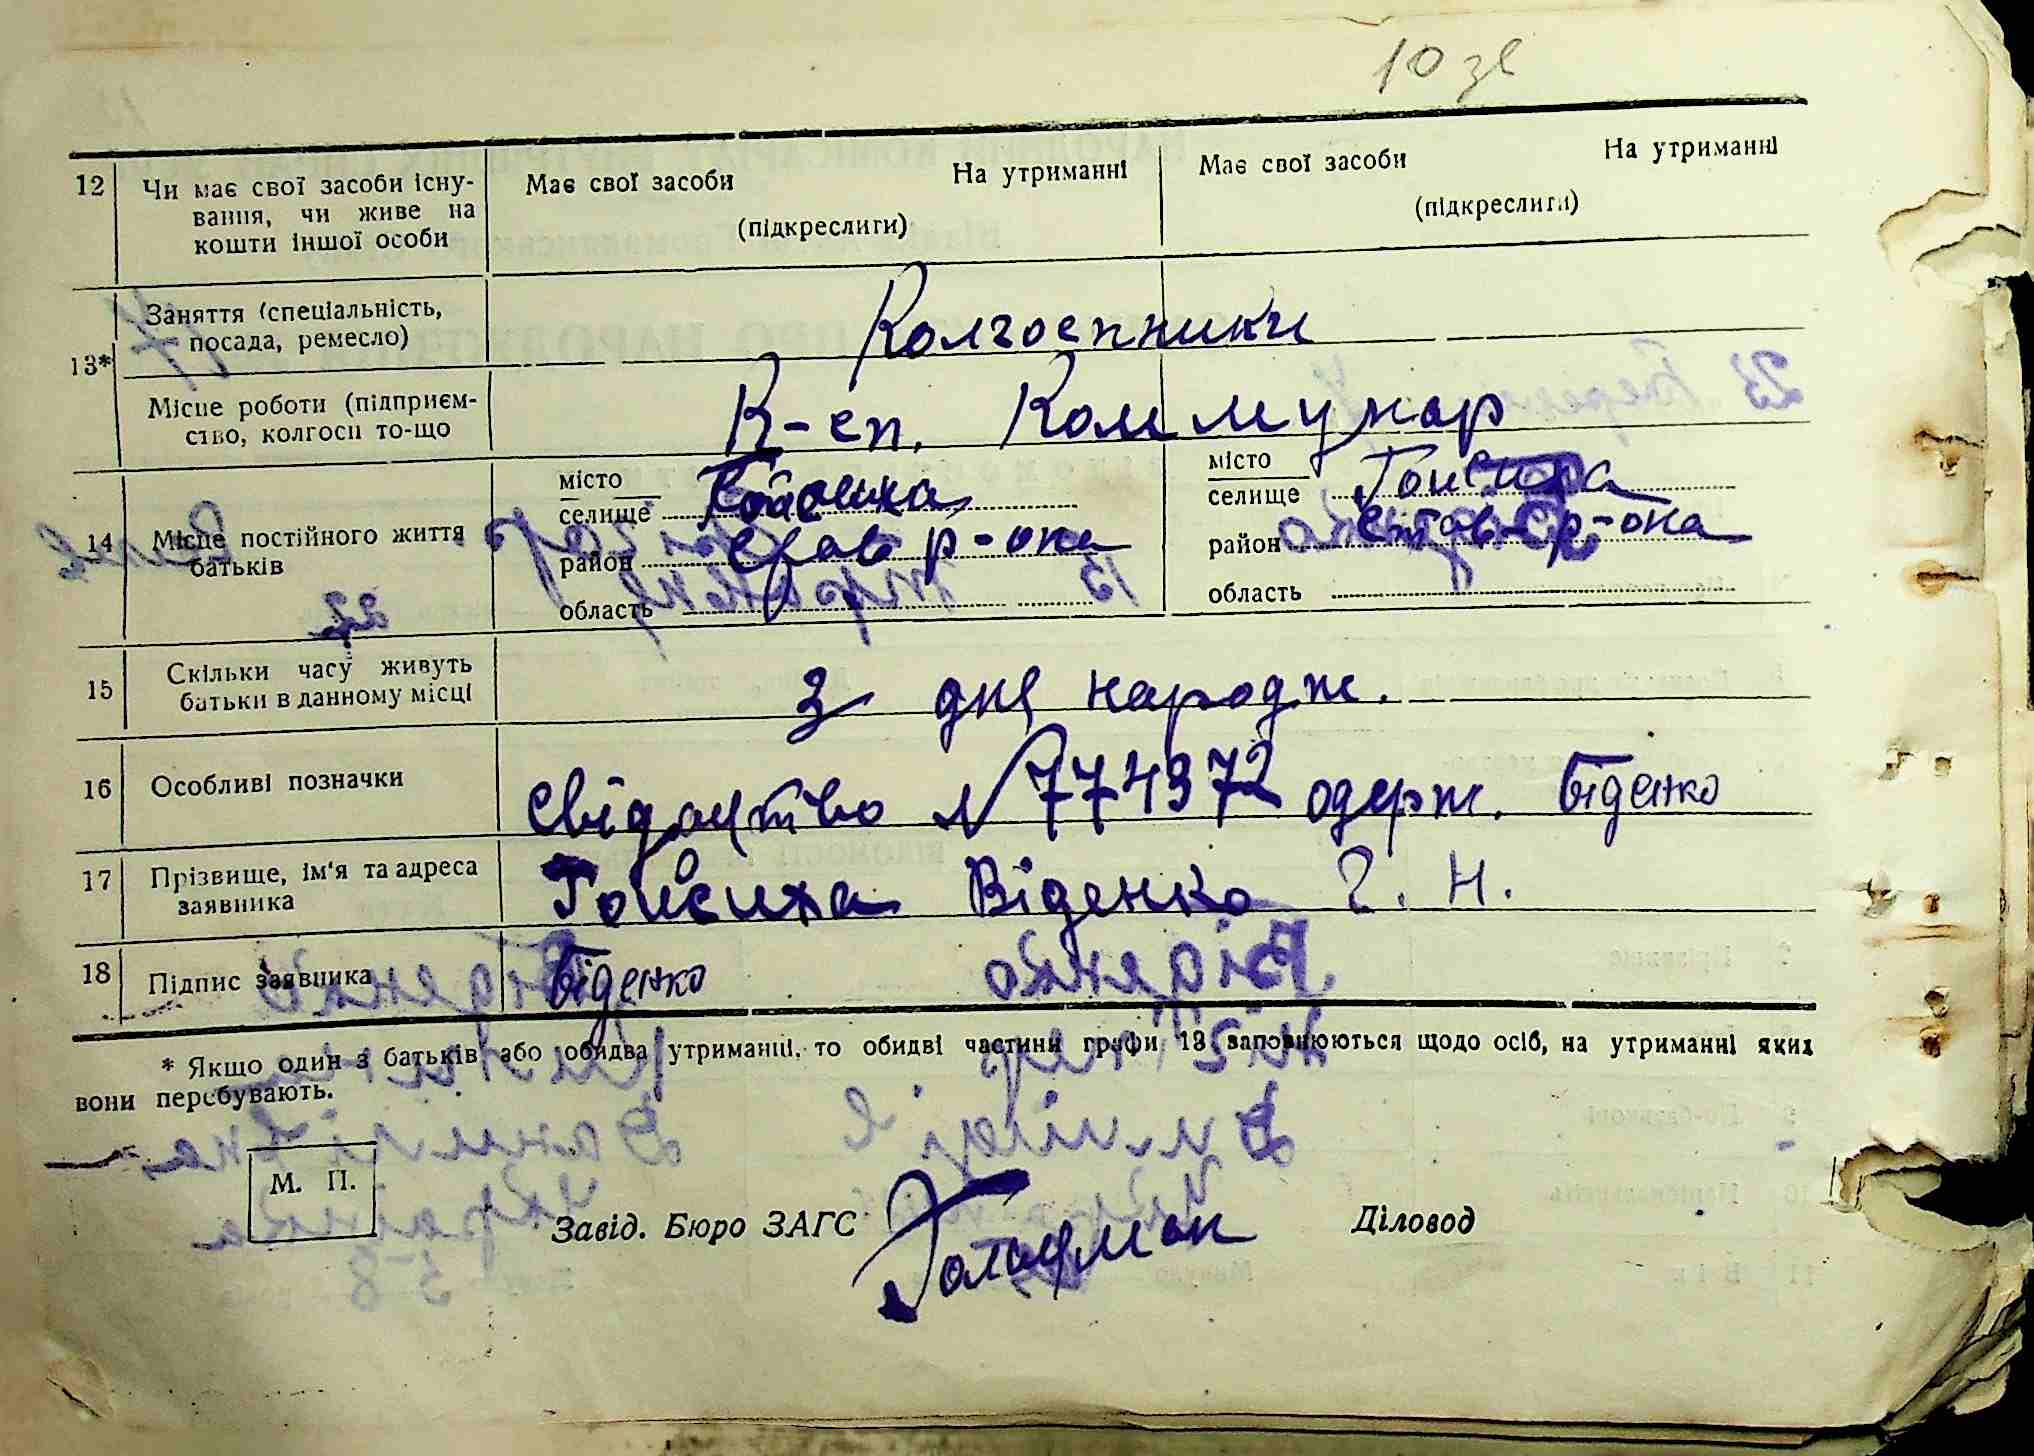 10 зв
12 Чи має свої засоби існу-
вання, чи живе на
кошти іншої особи
Має свої засоби На утриманні
(підкреслити)
Має свої засоби На утриманні
(підкреслити)
13*
Заняття (спеціальність,
посада, ремесло)
Колгоспники
Місце роботи (підприєм-
ство, колгосп то-що
К-сп. Коммунар
14 Місце постійного життя
батьків
місто
селище
район став р-она
область
місто
селище
район став р-она
область
15 Скільки часу живуть
батьки в данному місці
З дня народж.
16 Особливі позначки
Свідоцтво N 774972 одерж. Біденко
17 Прізвище, ім'я та адреса
заявника
Біденко Г. Н.
18 Підпис заявника
Біденко
* Якщо один з батьків або обидва утриманці, то обидві частини графи 13 заповнюються щодо осіб, на утриманні яких
вони перебувають.
М. П.
Завід. Бюро ЗАГС
Діловод